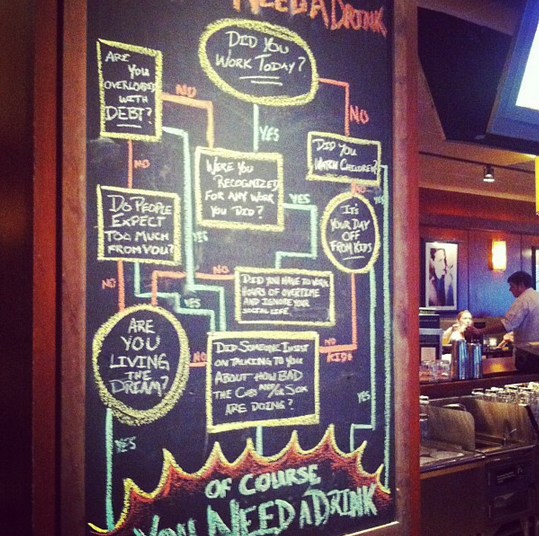 NEED A DRINK
DID YOU
WORK TODAY?
ARE
YOU
OVERLOADED
WITH
DEBT?
NO
NO
YES
DID YOU
WATCH CHILDREN?
NO
WERE YOU
RECOGNIZED
FOR ANY WORK
YOU DID?
NO
YES
YES
DO PEOPLE
EXPECT
TOO MUCH
FROM YOU?
IT'S
YOUR DAY
OFF
FROM KIDS
YES
NO
NO
YES
DID YOU HAVE TO WORK
HOURS OF OVERTIME
AND IGNORE YOUR
SOCIAL LIFE
ARE
YOU
LIVING
THE
DREAM?
NO
DID SOMEONE INSIST
ON TALKING TO YOU
ABOUT HOW BAD
THE CUBS AND/OR SOX
ARE DOING?
NO
KIDS
YES
YES
OF COURSE
YOU NEED A DRINK